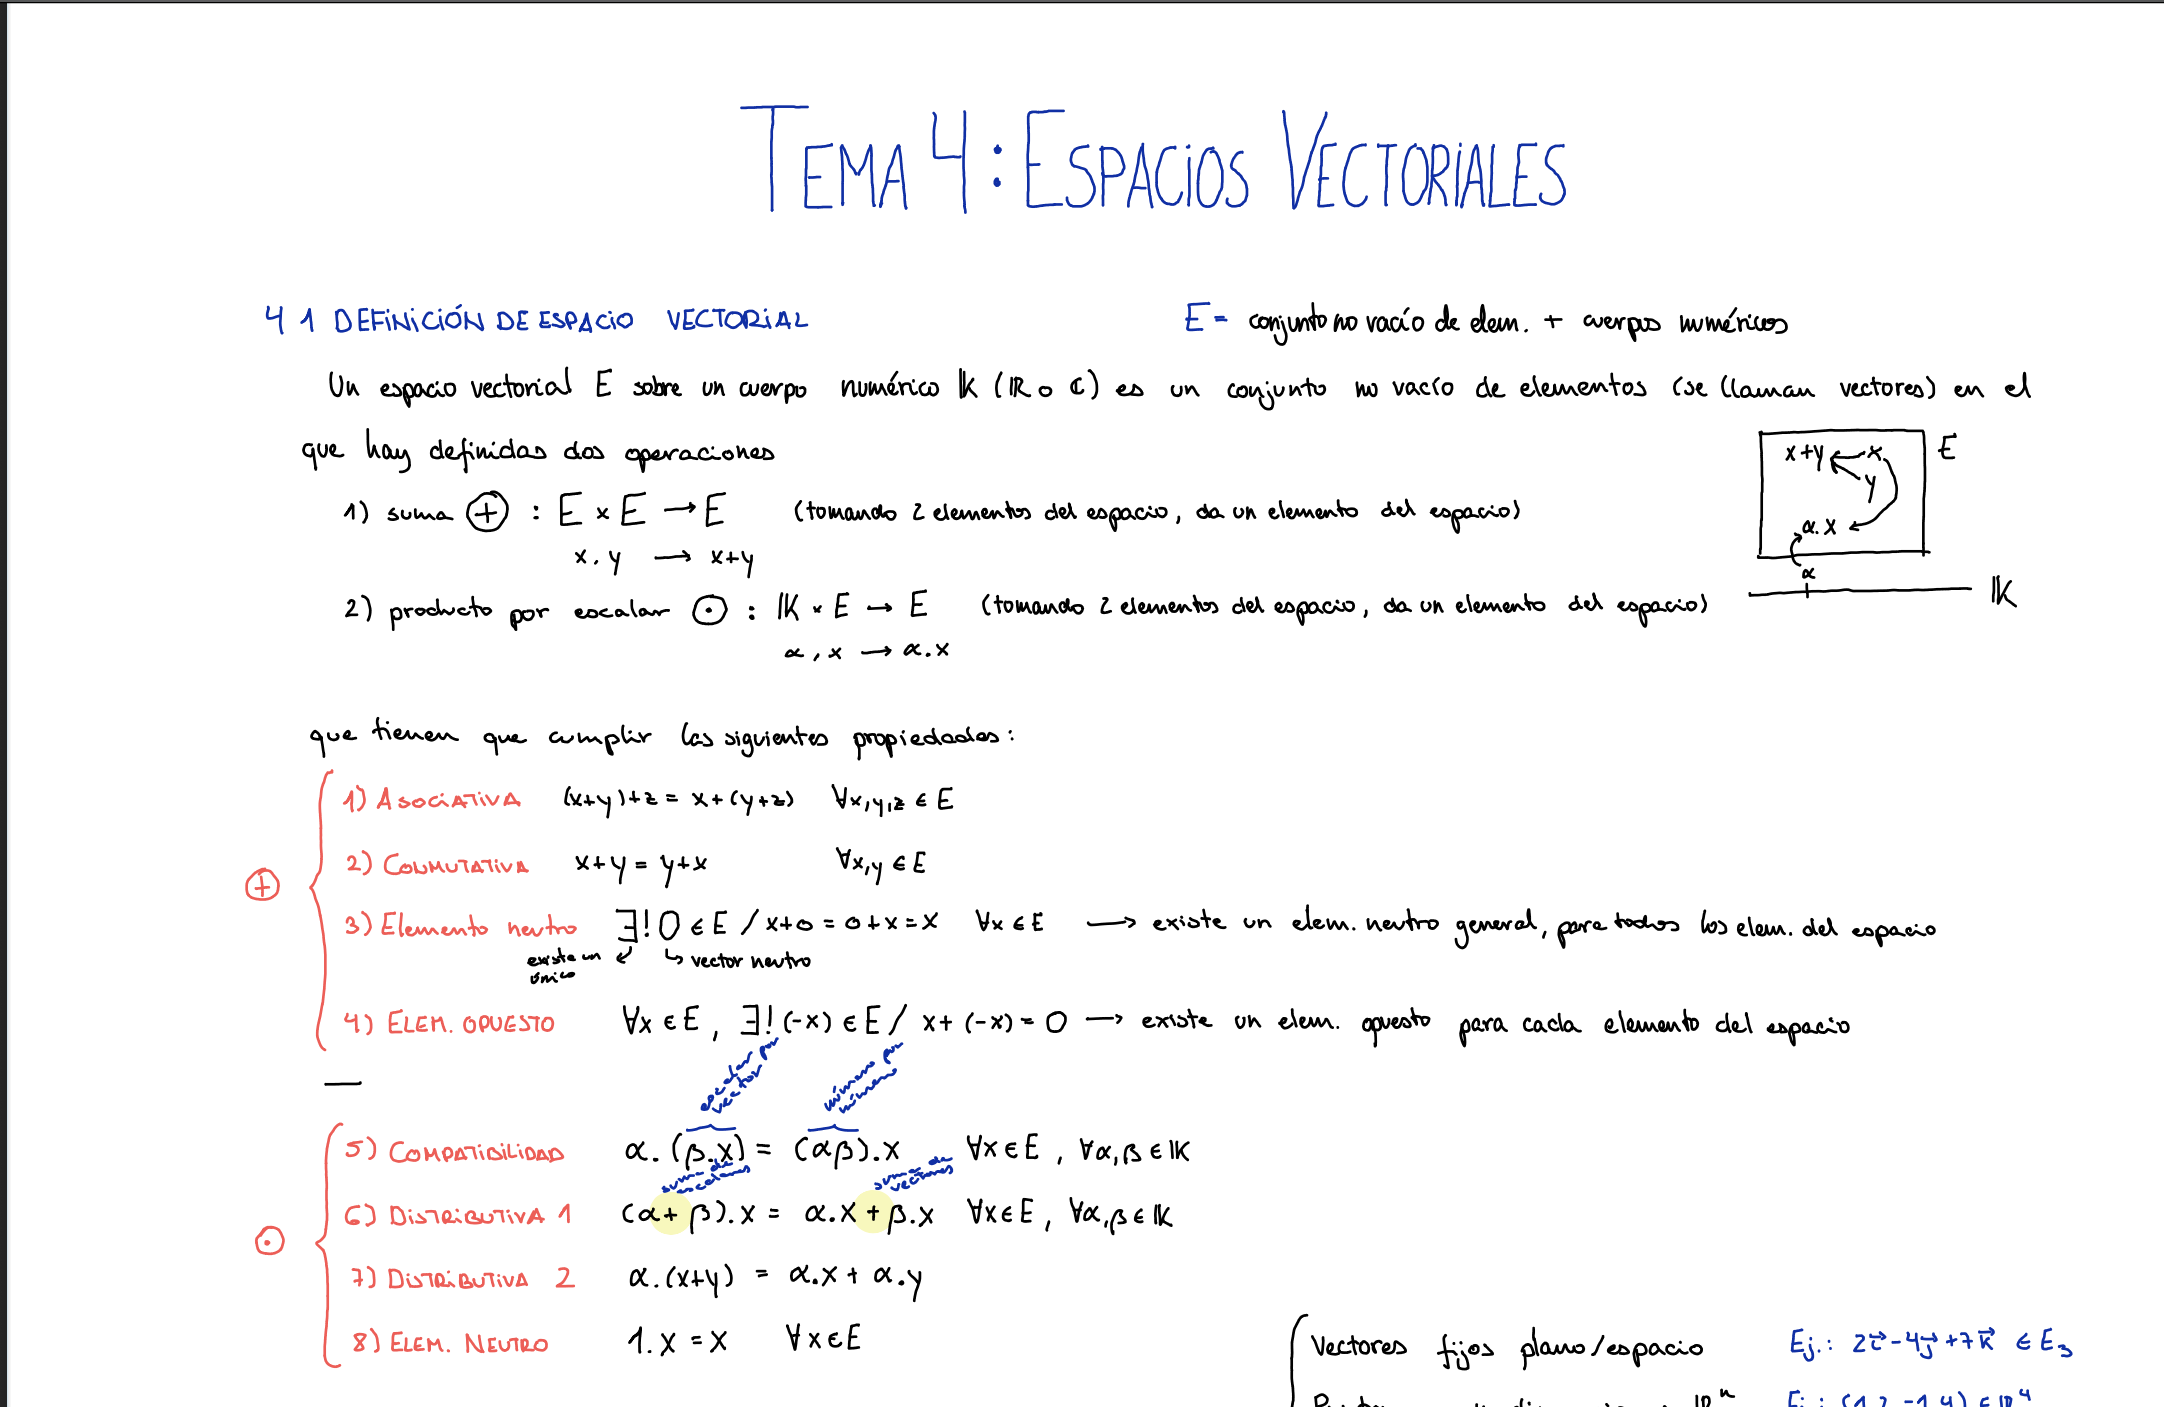 TEMA 4: ESPACIOS VECTORIALES
4 1 DEFINICIÓN DE ESPACIO VECTORIAL
E = conjunto no vacío de elem. + cuerpos numéricos
Un espacio vectorial E sobre un cuerpo numérico 𝕂 (ℝ o ℂ) es un conjunto no vacío de elementos (se llaman vectores) en el
que hay definidas dos operaciones
x+y ← x E
y
α.x
α
𝕂
1) suma ⊕ : E × E → E (tomando 2 elementos del espacio, da un elemento del espacio)
x, y → x+y
2) producto por escalar ⊙ : 𝕂 × E → E (tomando 2 elementos del espacio, da un elemento del espacio)
α, x → α.x
que tienen que cumplir las siguientes propiedades:
⊕
1) ASOCIATIVA (x+y)+z = x+(y+z) ∀x,y,z ∈ E
2) CONMUTATIVA x+y = y+x ∀x,y ∈ E
3) Elemento neutro ∃! 0 ∈ E / x+0 = 0+x = x ∀x ∈ E → existe un elem. neutro general, para todos los elem. del espacio
existe un único ↳ vector neutro
4) ELEM. OPUESTO ∀x ∈ E, ∃! (-x) ∈ E / x+(-x) = 0 → existe un elem. opuesto para cada elemento del espacio
escalar por vector número por número
⊙
5) COMPATIBILIDAD α.(β.x) = (αβ).x ∀x ∈ E, ∀α,β ∈ 𝕂
suma de escalares suma de vectores
6) DISTRIBUTIVA 1 (α+β).x = α.x + β.x ∀x ∈ E, ∀α,β ∈ 𝕂
7) DISTRIBUTIVA 2 α.(x+y) = α.x + α.y
8) ELEM. NEUTRO 1.x = x ∀x ∈ E
Vectores fijos plano/espacio Ej.: 2i⃗-4j⃗+7k⃗ ∈ E₃